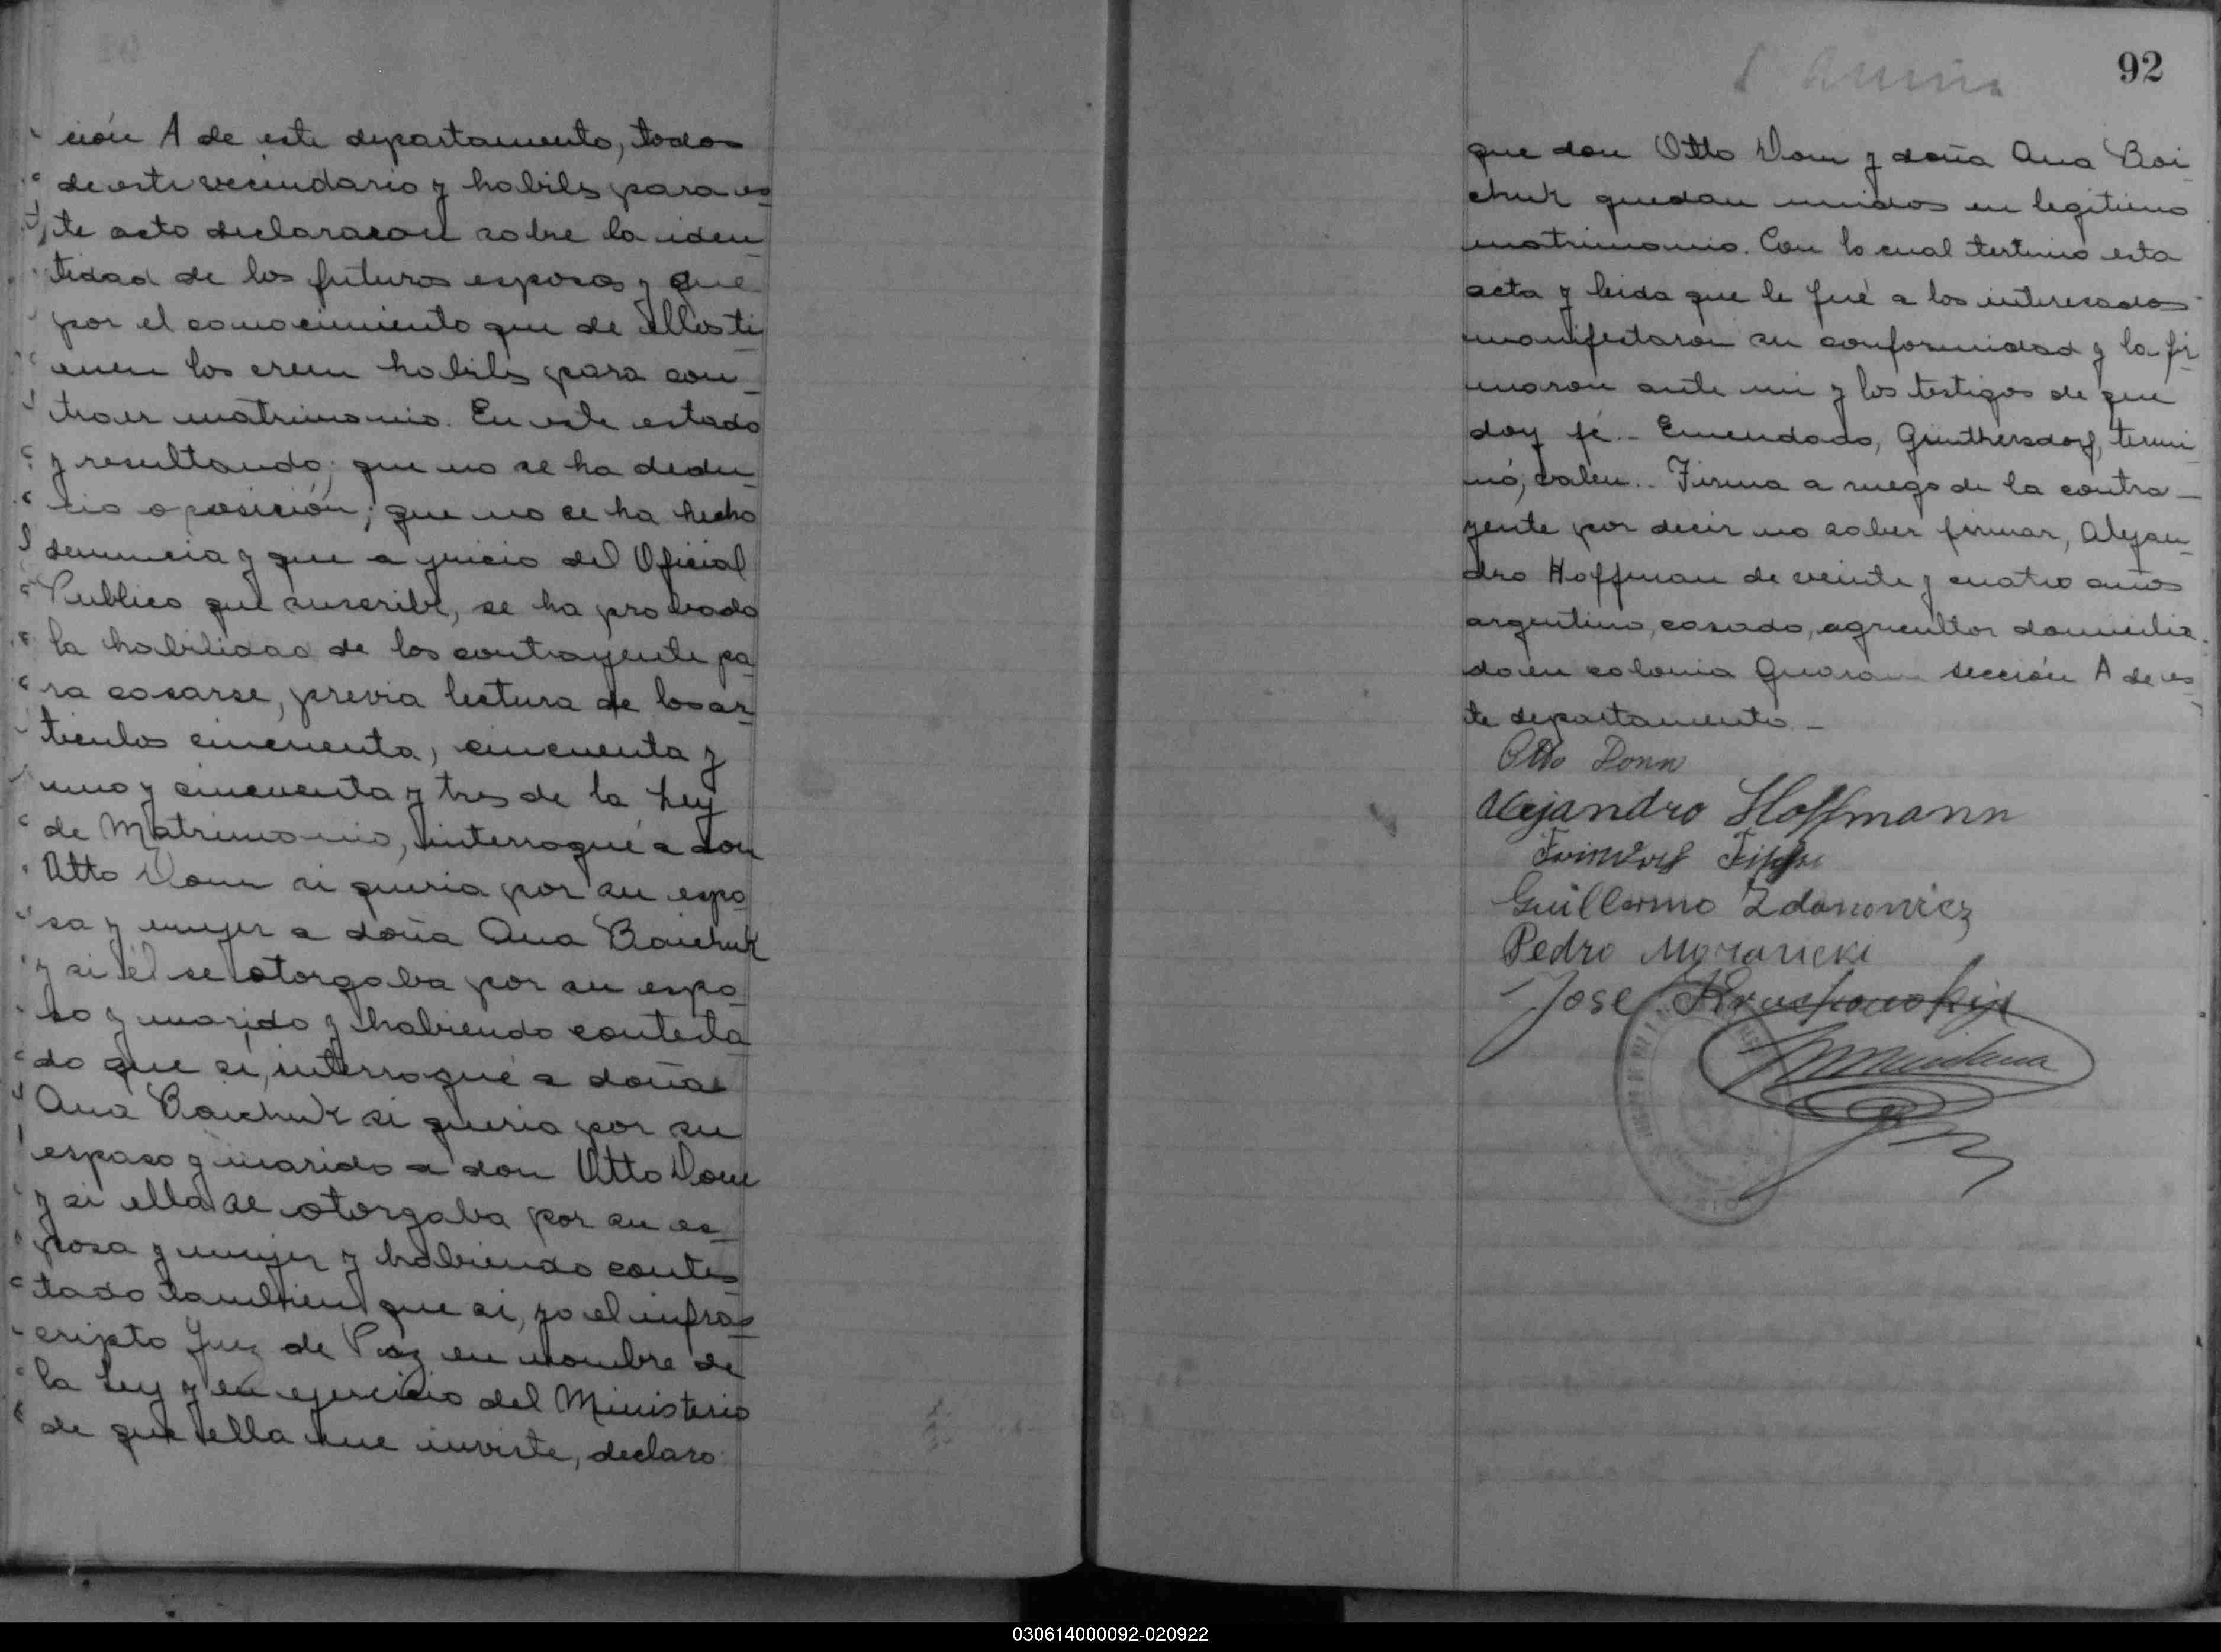 ción A de este departamento, todos
de este vecindario y habiles para es-
te acto declararon sobre la iden-
tidad de los futuros esposos y que
por el conocimiento que de ellos ti-
enen los creen habiles para con-
traer matrimonio. En este estado
y resultando; que no se ha dedu-
cio oposición; que no se ha hecho
denuncia y que a juicio del Oficial
Publico que suscribe, se ha probado
la habilidad de los contrayente pa-
ra casarse, previa lectura de los ar-
ticulos cincuenta, cincuenta y
uno y cincuenta y tres de la Ley
de Matrimonio, interrogué a don
Otto Donn si queria por su espo-
sa y mujer a doña Ana Boichuk
y si él se otorgaba por su espo-
so y marido y habiendo contesta-
do que si, interrogué a doña
Ana Boichuk si queria por su
esposo y marido a don Otto Donn
y si ella se otorgaba por su es-
posa y mujer y habiendo contes-
tado tambien que si, yo el infras-
cripto Juez de Paz en nombre de
la Ley y en ejercicio del Ministerio
de que ella me inviste, declaro
92
que don Otto Donn y doña Ana Boi-
chuk quedan unidos en legitimo
matrimonio. Con lo cual terminó esta
acta y leida que le fué a los interesados
manifestaron su conformidad y la fir-
maron ante mi y los testigos de que
doy fé.- Enmendado, Gunthersdorf, termi-
nó, valen.. Firma a ruego de la contra-
yente por decir no saber firmar, Alejan-
dro Hoffman de veinte y cuatro años
argentino, casado, agricultor domicilia-
do en colonia Guarani sección A de es-
te departamento.-
Otto Donn
Alejandro Hoffmann
Guillermo Zdanowicz
Pedro
Jose
030614000092-020922